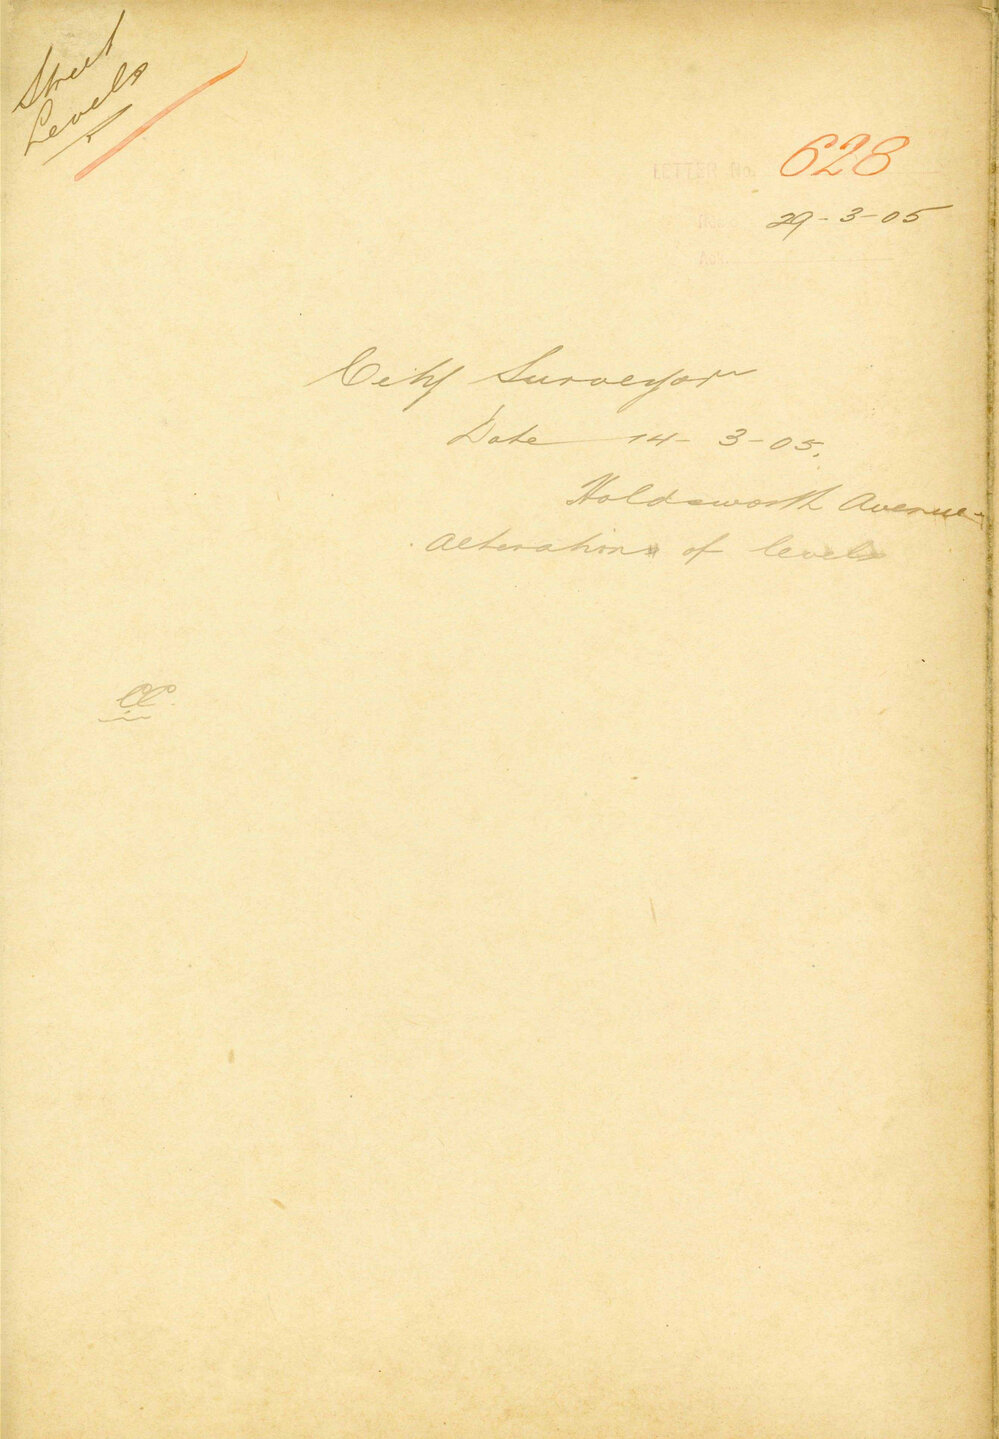 Street
Levels
LETTER No. 628
Rec. 29-3-05
Ack.
City Surveyor
Date 14-3-05.
Holdsworth Avenue-
Alterations of levels
CC.